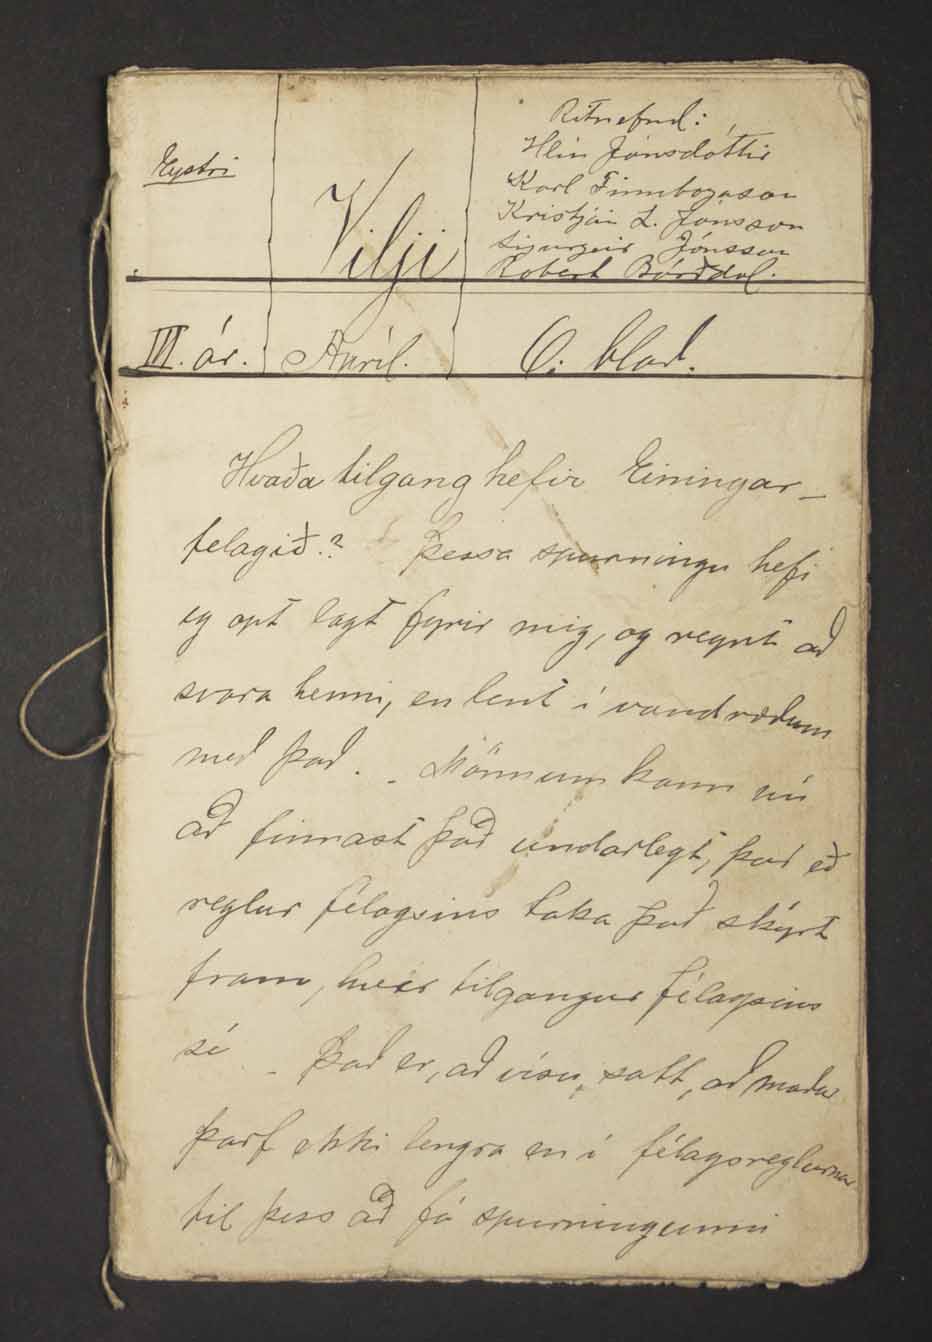 Eystri
Vilji
Ritnefnd:
Hlín Jónsdóttir
Karl Finnbogason
Kristján L. Jónsson
Sigurgeir Jónsson
Robert Bárðdal.
III. ár.
Apríl.
6. blað.
Hvaða tilgang hefir Einingar-
felagið.? Þessa spurningu hefi
eg opt lagt fyrir mig, og reynt að
svara henni, en lent í vandræðum
með það. - Mönnum kann nú
að finnast það undarlegt, því eð
reglur félagsins taka það skýrt
fram, hver tilgangur félagsins
sé - Það er, að vísu, satt, að maður
þarf ekki lengra en í félagsreglurnar
til þess að fá spurningunni